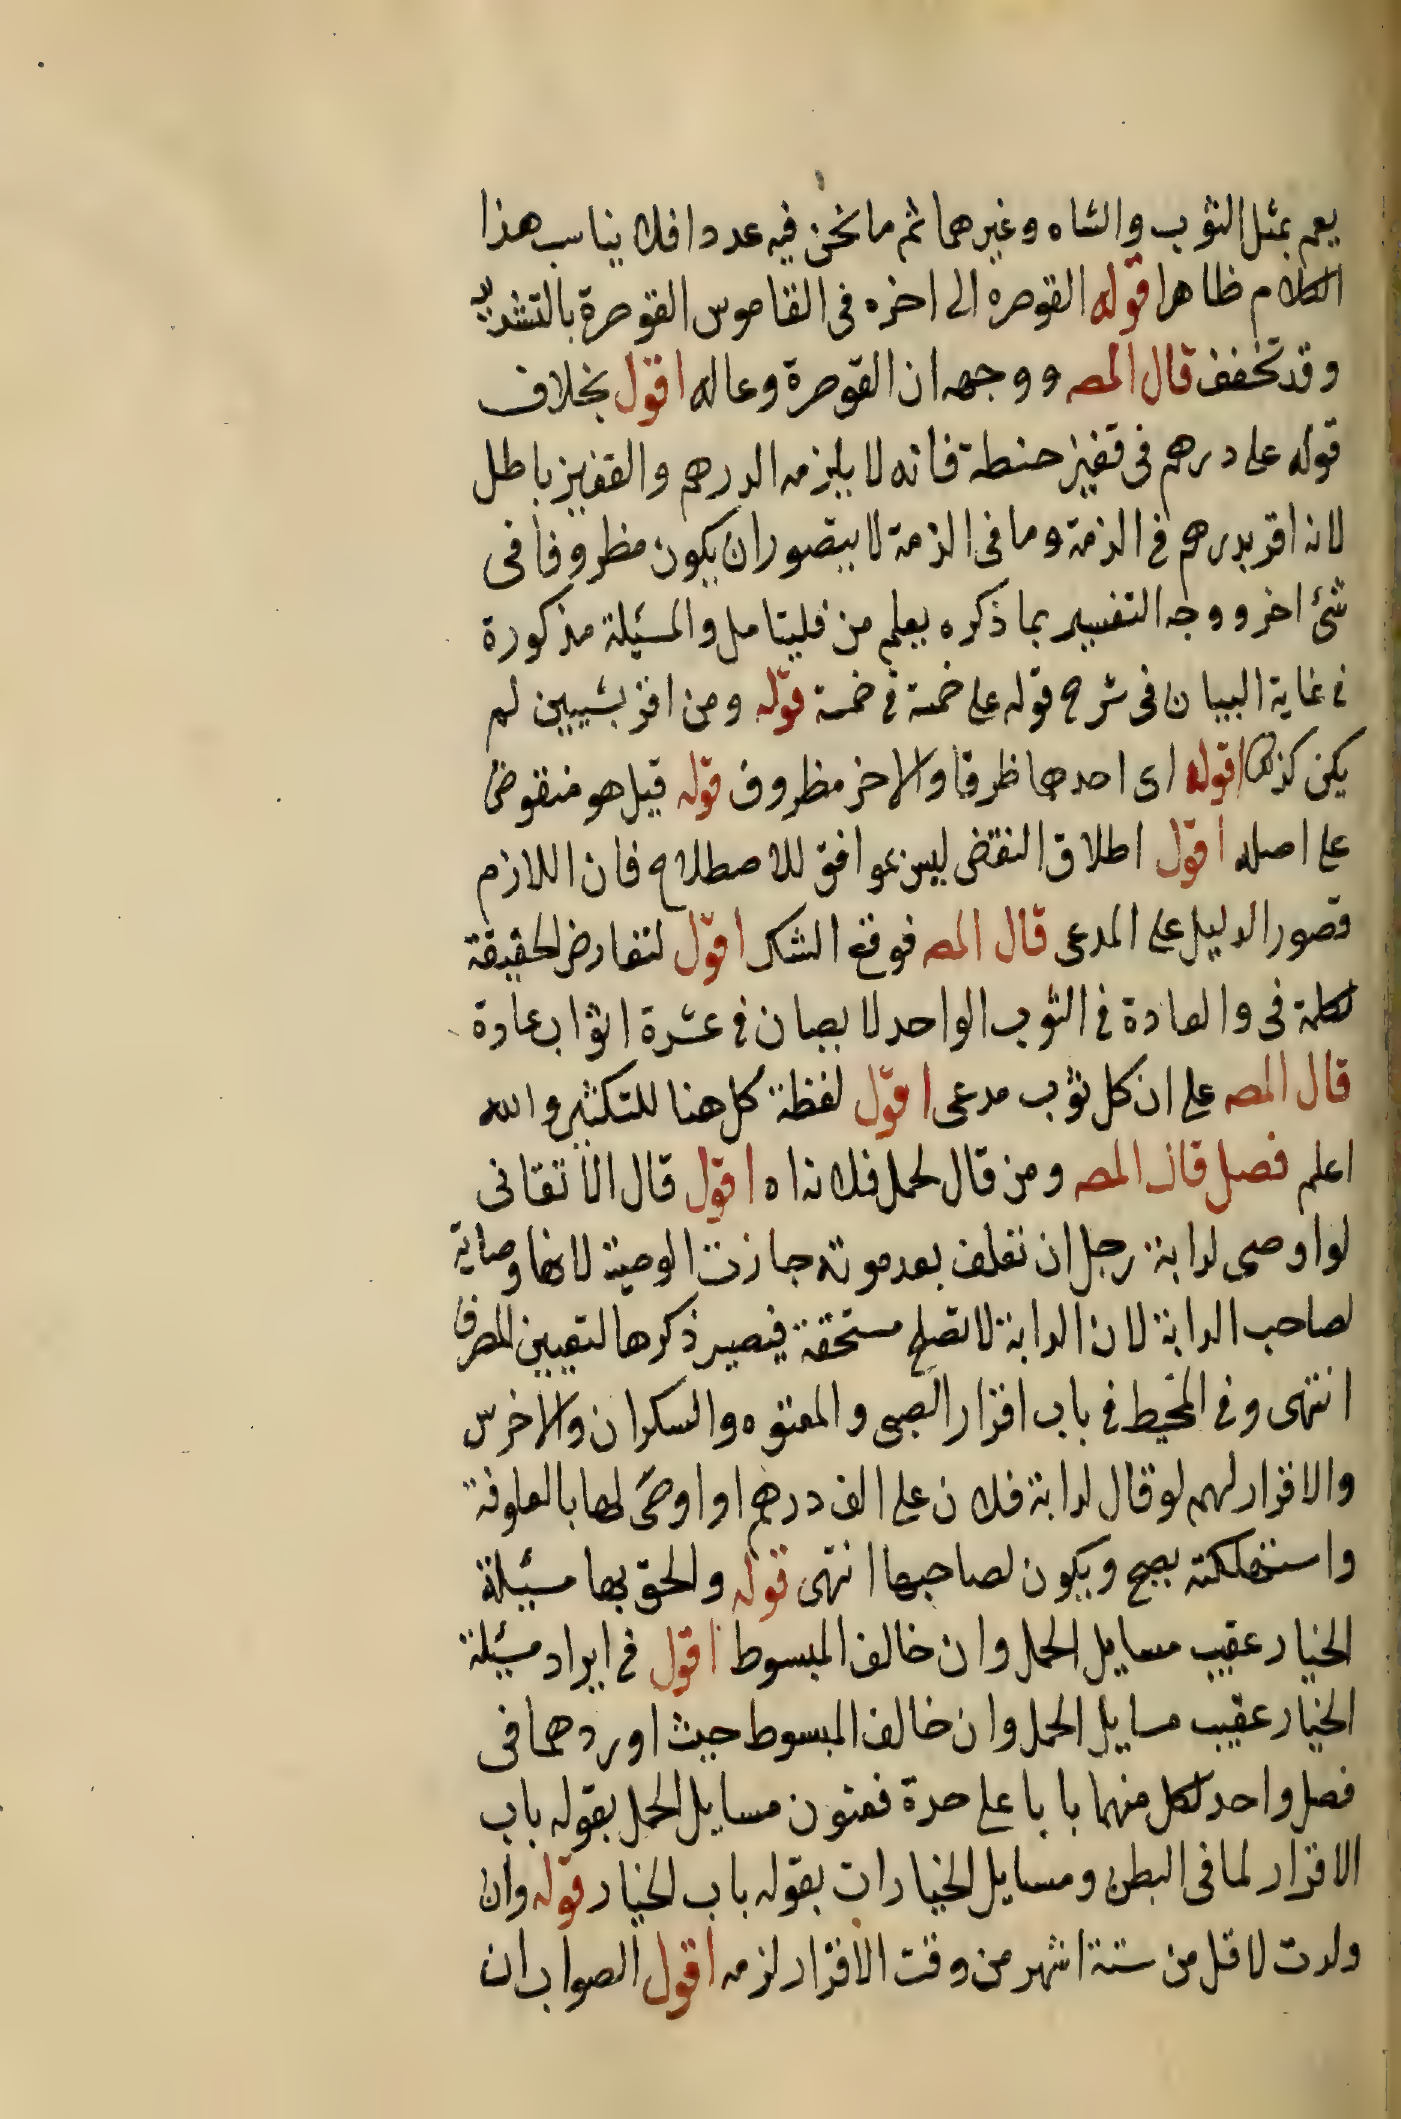 يعم بمثل الثوب والشاه وغيرهما ثم ما نحن فيه عددا فلا يناسب هذا
الكلام ظاهرا قوله القوصره الى اخره فى القاموس القوصرة بالتشديد
وقد تخفف قال المصه ووجهه ان القوصرة وعاله اقول بخلاف
قوله على درهم فى قفيز حنطة فانه لا يلزمه الدرهم والقفيز باطل
لانه اقر بدرهم فى الذمة وما فى الذمة لا يتصور ان يكون مظروفا فى
شئ اخر ووجه التفسير بما ذكره يعلم من فليتامل والمسئلة مذكورة
فى غاية البيان فى شرح قوله على خمسة فى خمسة قوله ومن اقر بشيين لم
يكن كذلك اقوله اى احدهما ظرفا والاخر مظروف قوله قيل هو منقوض
على اصله اقول اطلاق النقض ليس بموافق للاصطلاح فان اللازم
قصور الدليل على المدعى قال المصه فوقع الشك اقول لتعارض الحقيقة
لكلمة فى والعادة فى الثوب الواحد لا يصان فى عشرة اثواب عادة
قال المصه على ان كل ثوب مدعى اقول لفظة كل هنا للتكثير والله
اعلم فصل قال المصه ومن قال لحمل فلانه اه اقول قال الاتقانى
لو اوصى لدابة رجل ان تعلف بعد موته جازت الوصية لانها وصاية
لصاحب الدابة لان الدابة لا تصلح مستحقة فيصير ذكرها لتعيين المصرف
انتهى وفى المحيط فى باب اقرار الصبى والمعتوه والسكران والاخرس
والاقرار لهم لو قال لدابة فلان على الف درهم او اوصى لها بالعلوفة
واستهلكته يصح ويكون لصاحبها انتهى قوله والحق بها مسئلة
الخيار عقيب مسايل الحمل وان خالف المبسوط اقول فى ايراد مسئلة
الخيار عقيب مسايل الحمل وان خالف المبسوط حيث اوردهما فى
فصل واحد لكل منهما بابا على حدة فعنون مسايل الحمل بقوله باب
الاقرار لما فى البطن ومسايل الخيارات بقوله باب الخيار قوله وان
ولدت لاقل من ستة اشهر من وقت الاقرار لزمه اقول الصواب ان